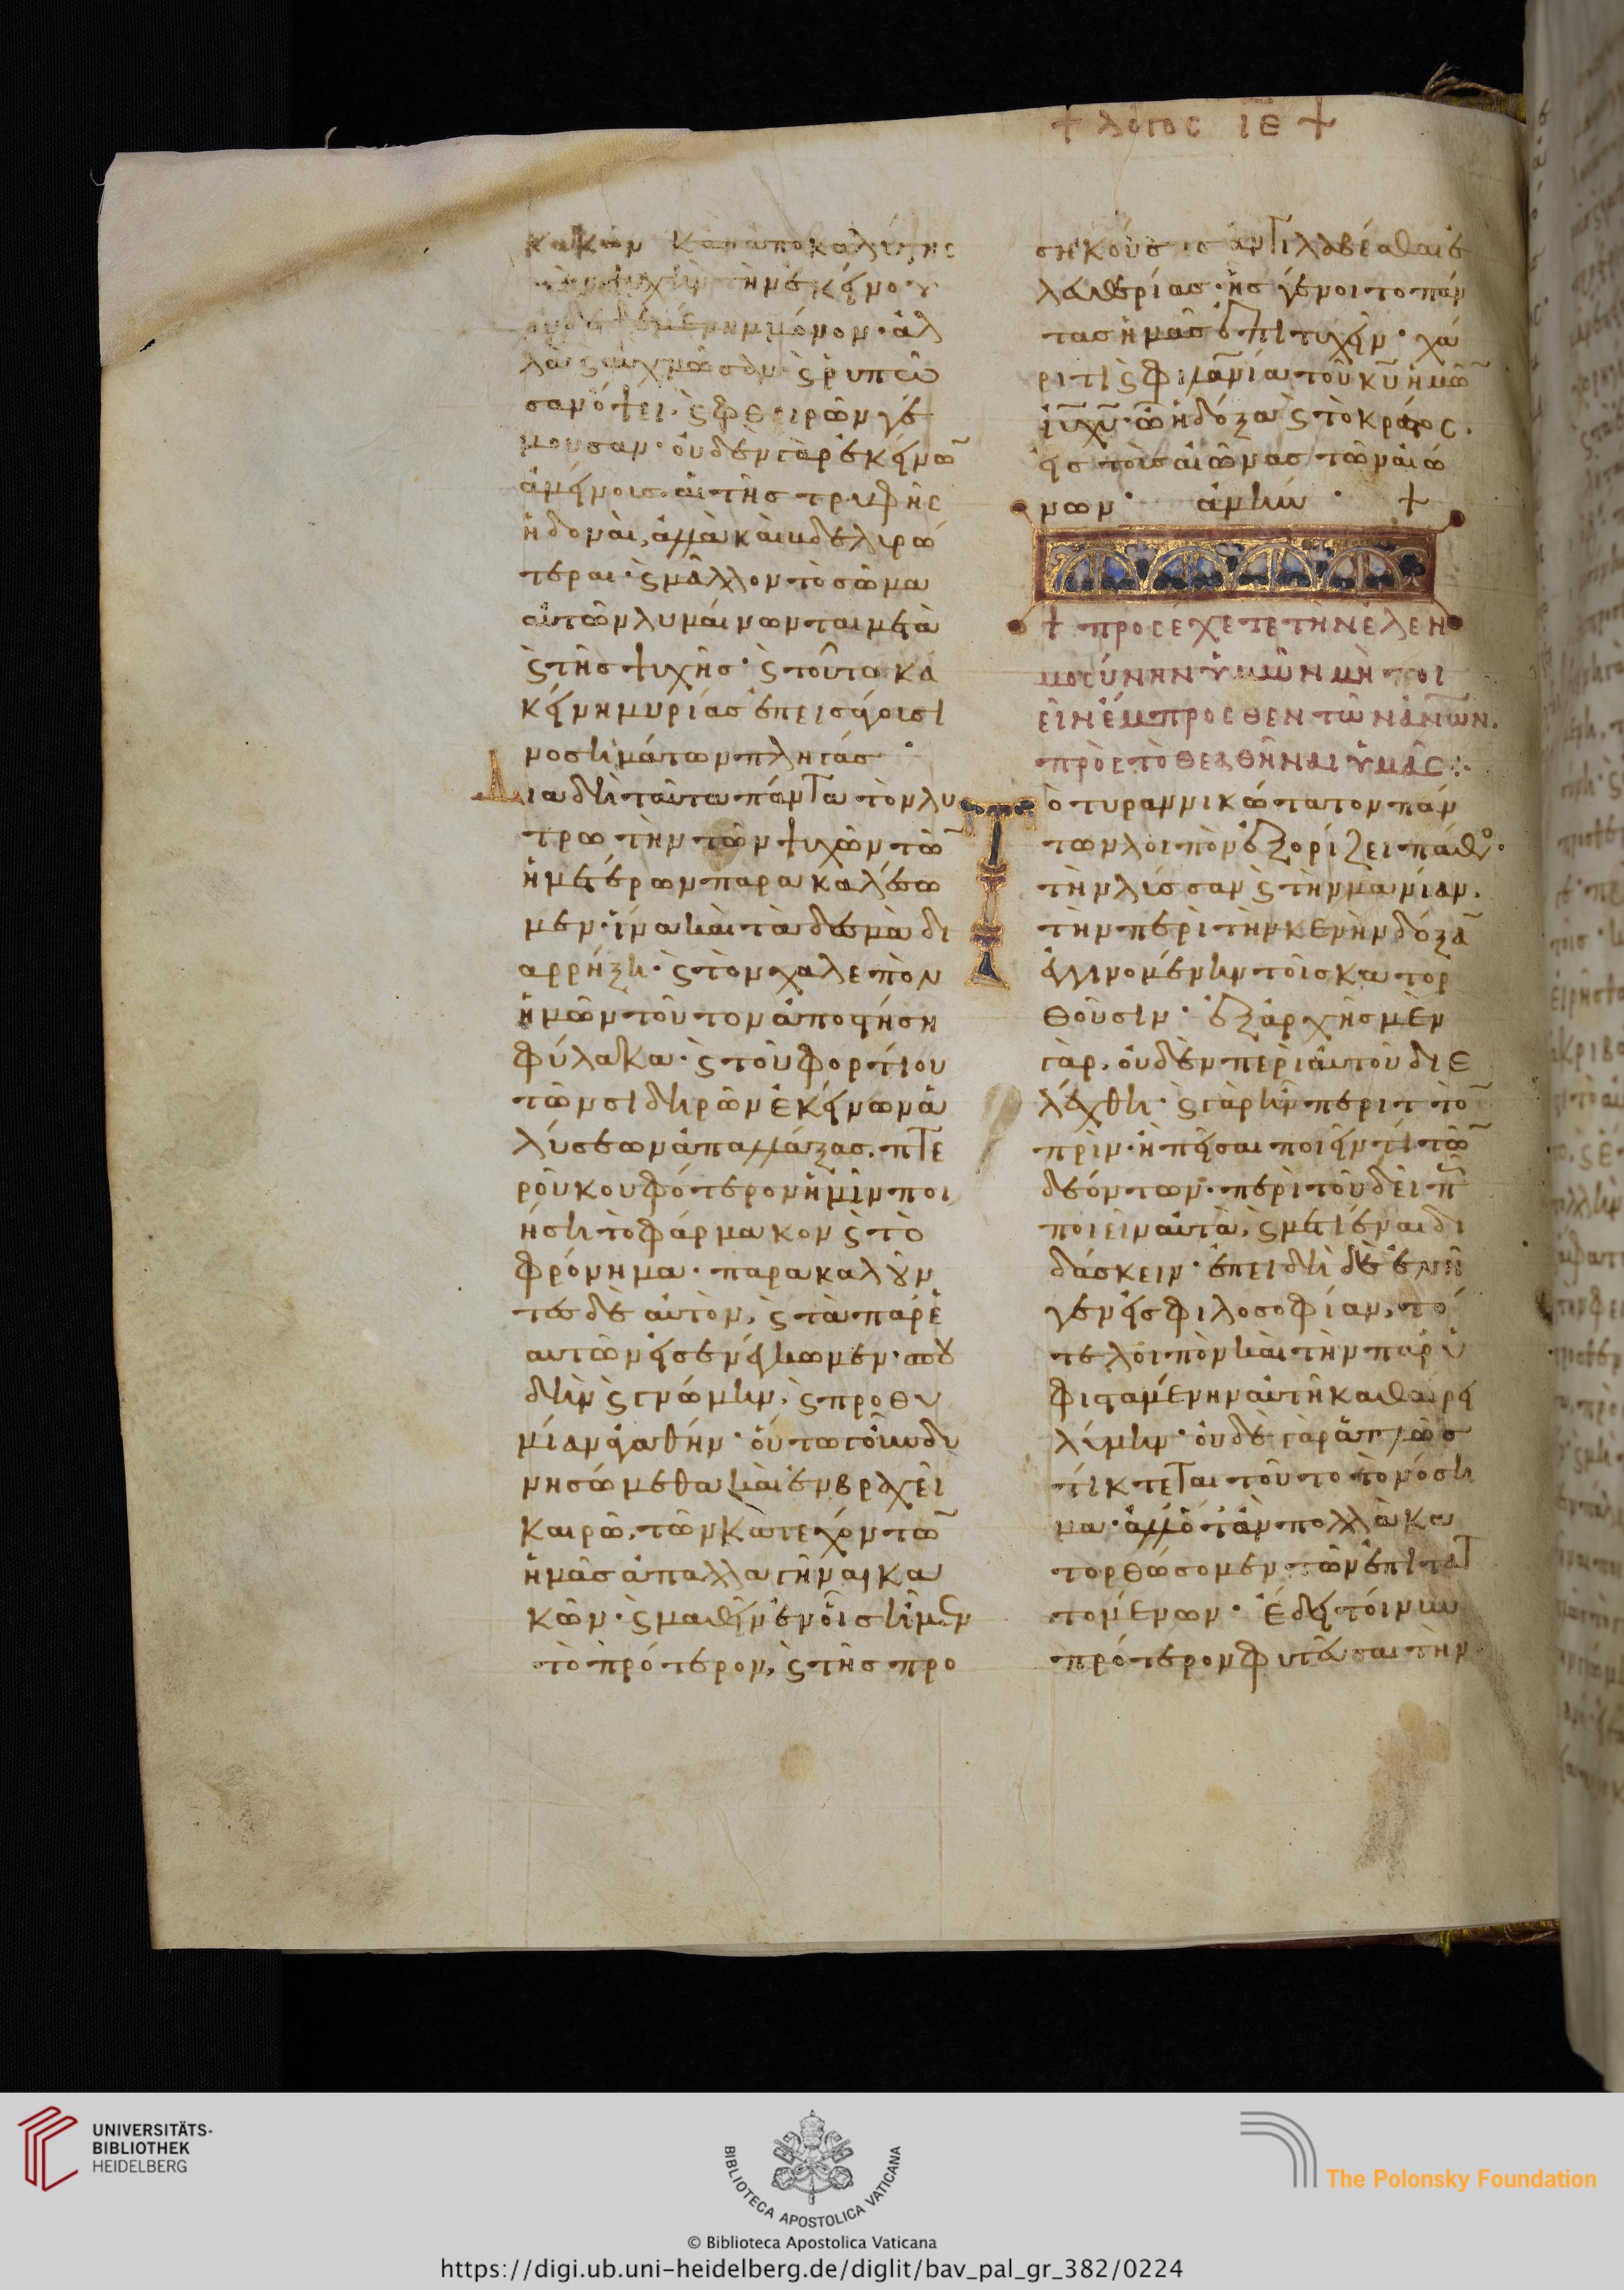 + λόγος ιε +
κακῶν κἂν ἀποκαλύψῃς
τὴν ψυχὴν τὴν ἐκείνου
μόνον· ἀλ
λὰ ϛ αὐχμῶσαν ϛ ῥυπῶ
σαν ὄψει· ϛ φθειρῶν γέ
μουσαν· οὐδὲν γὰρ ἐκείνω̄
ἀμείνους αἱ τῆς τρυφῆς
ἡδοναὶ, ἀλλὰ καὶ βδελυρώ
τεραι· ϛ μᾶλλον τὸ σῶμα
αὐτῶν λυμαίνωνται μετὰ
ϛ τῆς ψυχῆς· ϛ τοῦτο κἀ
κείνη μυρίας ἐπεισάγουσι
νοσημάτων πληγάς·
Διὰ δὴ ταῦτα πάντα τὸν λυ
τρωτὴν τῶν ψυχῶν τῶ̄
ἡμετέρων παρακαλέσω
μεν· ἵνα καὶ τὰ δεσμὰ δι
αρρήξη· ϛ τὸν χαλεπὸν
ἡμῶν τοῦτον ἀποστήση
φύλακα· ϛ τοῦ φορτίου
τῶν σιδηρῶν ἐκείνων ἁ
λύσεων ἀπαλλάξας, πτε
ροῦ κουφότερον ἡμῖν ποι
ήση τὸ φάρμακον ϛ τὸ
φρόνημα· παρακαλοῦν
τες δὲ αὐτὸν, ϛ τὰ παρ' ἑ
αυτῶν εἰσενέγκωμεν· σπου
δὴν ϛ γνώμην, ϛ προθυ
μίαν ἀγαθήν· οὕτω γὰρ δυ
νησώμεθα καὶ ἐν βραχεῖ
καιρῶ, τῶν κατεχόντω̄
ἡμᾶς ἀπαλλαγῆναι κα
κῶν· ϛ μαθεῖν ἐν οἷς ἦμεν
τὸ πρότερον, ϛ τῆς προ
σηκούσης ἀντιλαβέσθαι ἐ
λευθερίας· ἧς γένοιτο πάν
τας ἡμᾶς ἐπιτυχεῖν· χά
ριτι ϛ φιλανίᾱ τοῦ κῡ ἡμῶ̄
ῑῡ χῡ· ὧ ἡ δόξα ϛ τὸ κράτος.
εἰς τοὺς αἰῶνας τῶν αἰώ
νων· ἀμήν· +
+ προσέχετε τὴν ἐλεη
μοσύνην ὑμῶν μὴ ποι
εῖν ἔμπροσθεν τῶν ἀνω̄ν.
πρὸς τὸ θεαθῆναι ὑμᾶς:·
Τὸ τυραννικώτατον πάν
των λοιπὸν ἐξορίζει πάθος·
τὴν λύσσαν ϛ τὴν μανίαν.
τὴν περὶ τὴν κενὴν δόξᾱ
ἐγγινομένην τοῖς κατορ
θοῦσιν· ἐξ ἀρχῆς μὲν
γὰρ, οὐδὲν περὶ αὐτοῦ διε
λέχθη· ϛ γὰρ ἦν περιττὸ̄
πρὶν ἢ πεῖσαι ποιεῖν τί τῶ̄
δεόντων· περὶ τοῦ δεῖ π̄
ποιεῖν αὐτὰ, ϛ μετιέναι δι
δάσκειν· ἐπειδὴ δὲ ἐνῆ
γεν εἰς φιλοσοφίαν, τό
τε λοιπὸν καὶ τὴν παρυ
φισταμένην αὐτῆ καθαιρεῖ
λύμην· οὐδὲ γὰρ ἁπλῶς
τίκτεται τοῦτο τὸ νόση
μα· ἀλλ' ὅταν πολλὰ κα
τορθώσομεν τῶν ἐπιτατ
τομένων· Ἔδει τοίνυν
πρότερον φυτεῦσαι τὴν
UNIVERSITÄTS-
BIBLIOTHEK
HEIDELBERG
BIBLIOTECA APOSTOLICA VATICANA
The Polonsky Foundation
© Biblioteca Apostolica Vaticana
https://digi.ub.uni-heidelberg.de/diglit/bav_pal_gr_382/0224